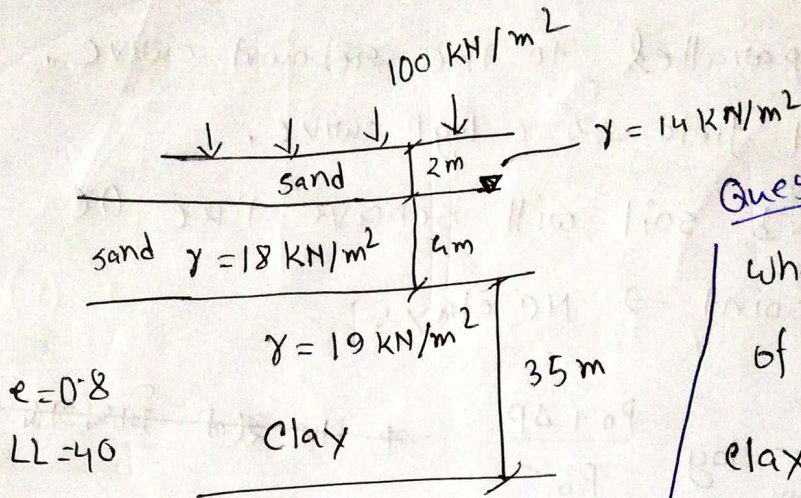 100 KN/m²
γ = 14 KN/m²
sand
2m
Ques
sand γ = 18 KN/m²
4m
wh
γ = 19 KN/m²
of
35 m
e = 0.8
LL = 40
Clay
clay